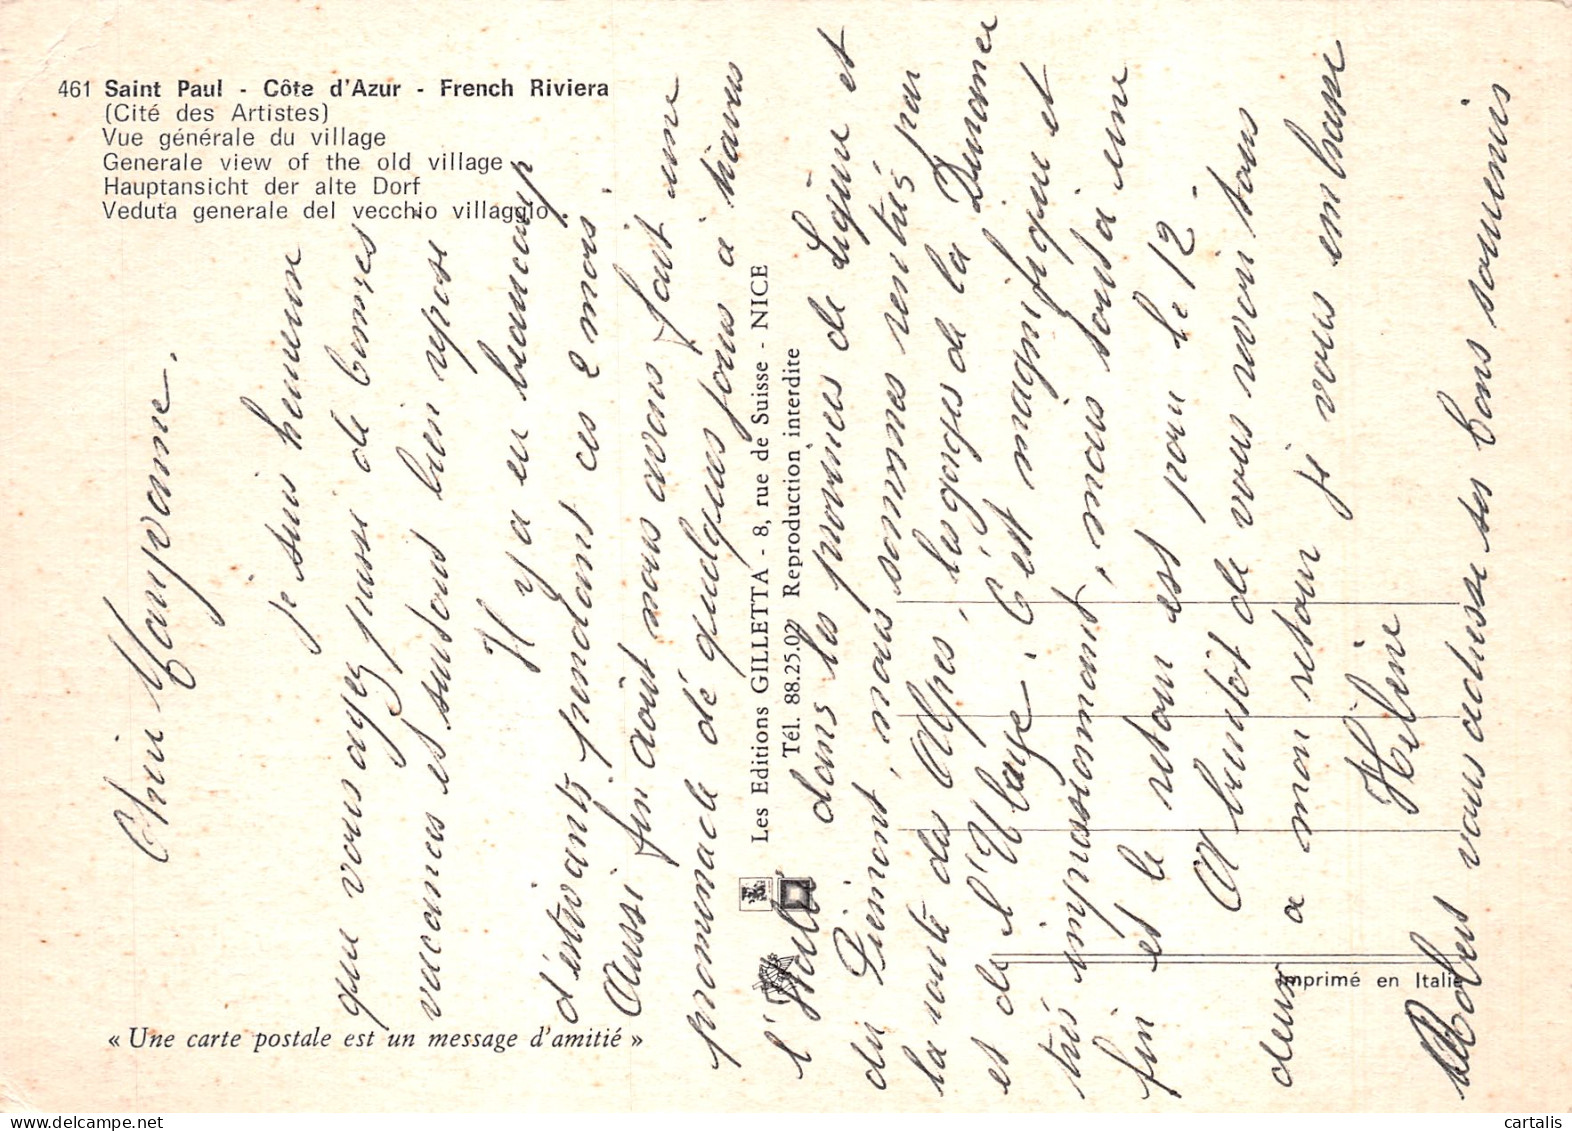 461 Saint Paul - Côte d'Azur - French Riviera
(Cité des Artistes)
Vue générale du village
Generale view of the old village
Hauptansicht der alte Dorf
Veduta generale del vecchio villaggio
« Une carte postale est un message d'amitié »
Les Editions GILLETTA - 8, rue de Suisse - NICE
Tél. 88.25.02 Reproduction interdite
imprimé en Italie
Chère
je suis heureuse
que vous ayez passé de bonnes
vacances et surtout bien reposé
Il y a eu beaucoup
d'estivants pendant ces 2 mois
Aussi fin août nous avons fait une
promenade de quelques jours à travers
l'Italie dans les provinces de Ligurie et
du Piémont, nous sommes rentrés par
la route des Alpes, les gorges de la Durance
et de l'Ubaye. C'est magnifique et
très impassionnant, mais tout a une
fin et le retour est pour le 12
A bientôt de vous revoir tous
deux a mon retour je vous embrasse
Hélène
Robert vous adresse ses bons souvenirs
cartalis - www.delcampe.net